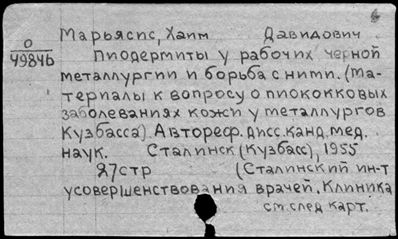 Марьясис, Хаим Давидович
О/49846
Пиодермиты у рабочих черной
металлургии и борьба с ними. (Ма-
териалы к вопросу о пиококковых
заболеваниях кожи у металлургов
Кузбасса). Автореф. дисс. канд. мед.
наук. Сталинск (Кузбасс), 1955
27стр (Сталинский ин-т
усовершенствования врачей. Клиника
см. след карт.